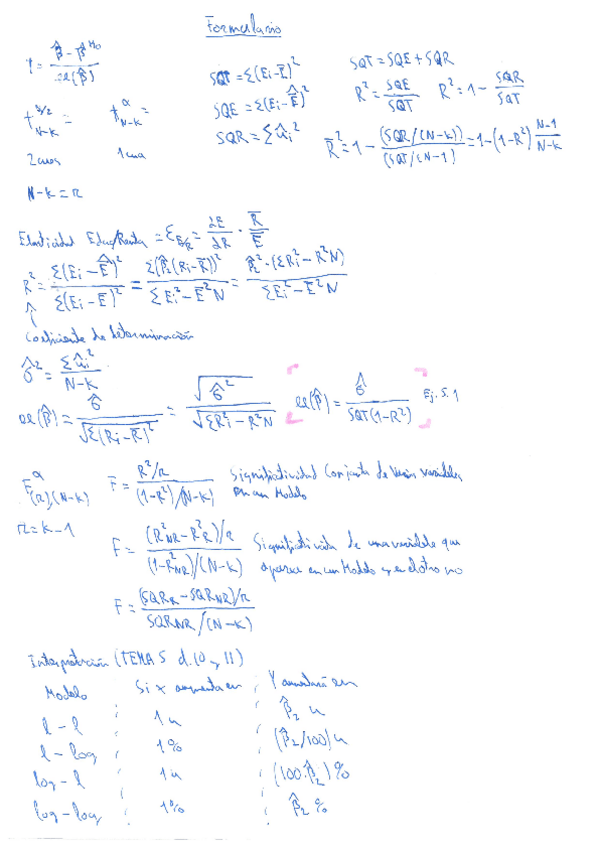 Formulario
t = (β̂ - β^H₀) / ee(β̂)
t^α/2_N-K = t^α_N-K =
2 colas 1 cola
N-K = r
SQT = Σ(Ei - Ē)²
SQE = Σ(Êi - Ē)²
SQR = Σûi²
SQT = SQE + SQR
R² = SQE/SQT R² = 1 - SQR/SQT
R̄² = 1 - (SQR/(N-K)) / (SQT/(N-1)) = 1 - (1-R²) (N-1)/(N-K)
Elasticidad Educ/Renta = ε_E/R = ∂E/∂R · R̄/Ē
R² = Σ(Ei - Ê)² / Σ(Ei - Ē)² = Σ(β̂₂(Ri - R̄))² / (ΣEi² - Ē²N) = β̂₂² · (ΣRi² - R̄²N) / (ΣEi² - Ē²N)
Coeficiente de determinación
σ̂² = Σûi² / (N-K)
ee(β̂) = σ̂ / √Σ(Ri - R̄)² = √σ̂² / √ΣRi² - R̄²N [ ee(β̂) = σ̂ / SQT(1-R²) ] Ej. 5.1
F^α_(r),(N-K) F = (R²/r) / ((1-R²)/(N-K)) Significatividad Conjunta de varias variables
en un Modelo
r = K-1
F = ((R²NR - R²R)/r) / ((1-R²NR)/(N-K)) Significativida de una variable que
aparece en un Modelo y en el otro no
F = ((SQRR - SQRNR)/r) / (SQRNR/(N-K))
Interpretación (TEMA 5 d.10 y 11)
Modelo Si x aumenta en Y aumentará en
l - l 1u β̂₂ u
l - log 1% (β̂₂/100) u
log - l 1u (100·β̂₂) %
log - log 1% β̂₂ %